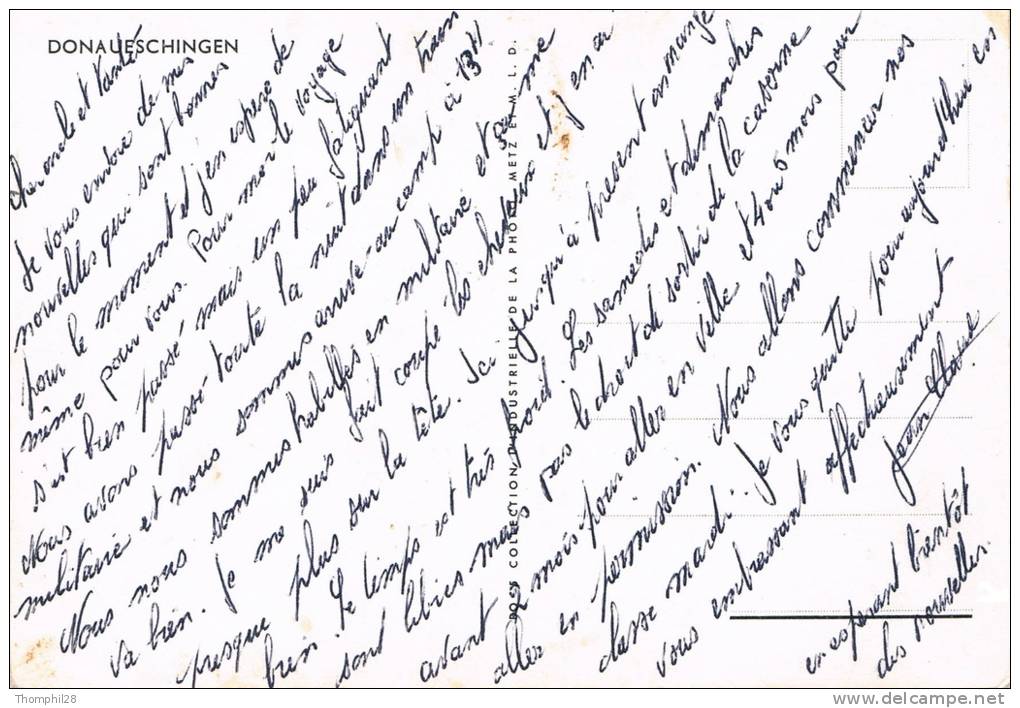 DONAUESCHINGEN
Cher oncle et tante
Je vous envoie de mes
nouvelles qui sont bonnes
pour le moment et j'en espere de
même pour vous. Pour moi le voyage
s'est bien passé mais un peu fatiguant
Nous avons passé toute la nuit dans un train
militaire et nous sommes arrivé au camp à 13H
Nous nous sommes habillés en militaire et ça me
va bien. Je me suis fait coupé les cheveux et j'en ai
presque plus sur la tête. Ici jusqu'à présent on mange
bien. Le temps est très froid. Les samedis et dimanches
sont libres mais pas le droit de sortir de la caserne
avant 2 mois pour aller en ville et 4 ou 5 mois pour
aller en permission. Nous allons commencer nos
classe mardi. Je vous quitte pour aujourd'hui en
vous embrassant affectueusement
Jean Claude
en esperant bientôt
des nouvelles.
COLLECTION D'INDUSTRIELLE DE LA PHOTO METZ ET M. L. D.
Thomphil28
http://www.delcampe.net